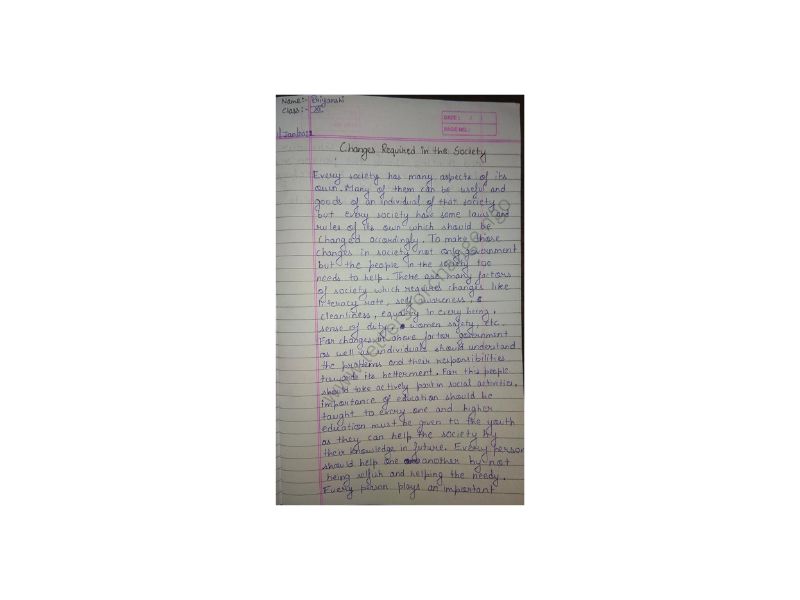 Name:- Priyanshi
Class:- XI
DATE: / /
PAGE NO.:
Changes Required in the Society
Every society has many aspects of its
own. Many of them can be useful and
goods of an individual of that society
but every society have some laws and
rules of its own which should be
changed accordingly. To make these
changes in society not only government
but the people in the society too
needs to help. There are many factors
of society which requires changes like
literacy rate, self awareness,
cleanliness, equality in every being,
sense of duty, women safety, etc.
For changes in above factor government
as well as individuals should understand
the problems and their responsibilities
towards its betterment. For this people
should take actively part in social activities,
importance of education should be
taught to every one and higher
education must be given to the youth
as they can help the society by
their knowledge in future. Every person
should help one another by not
being selfish and helping the needy.
Every person plays an important